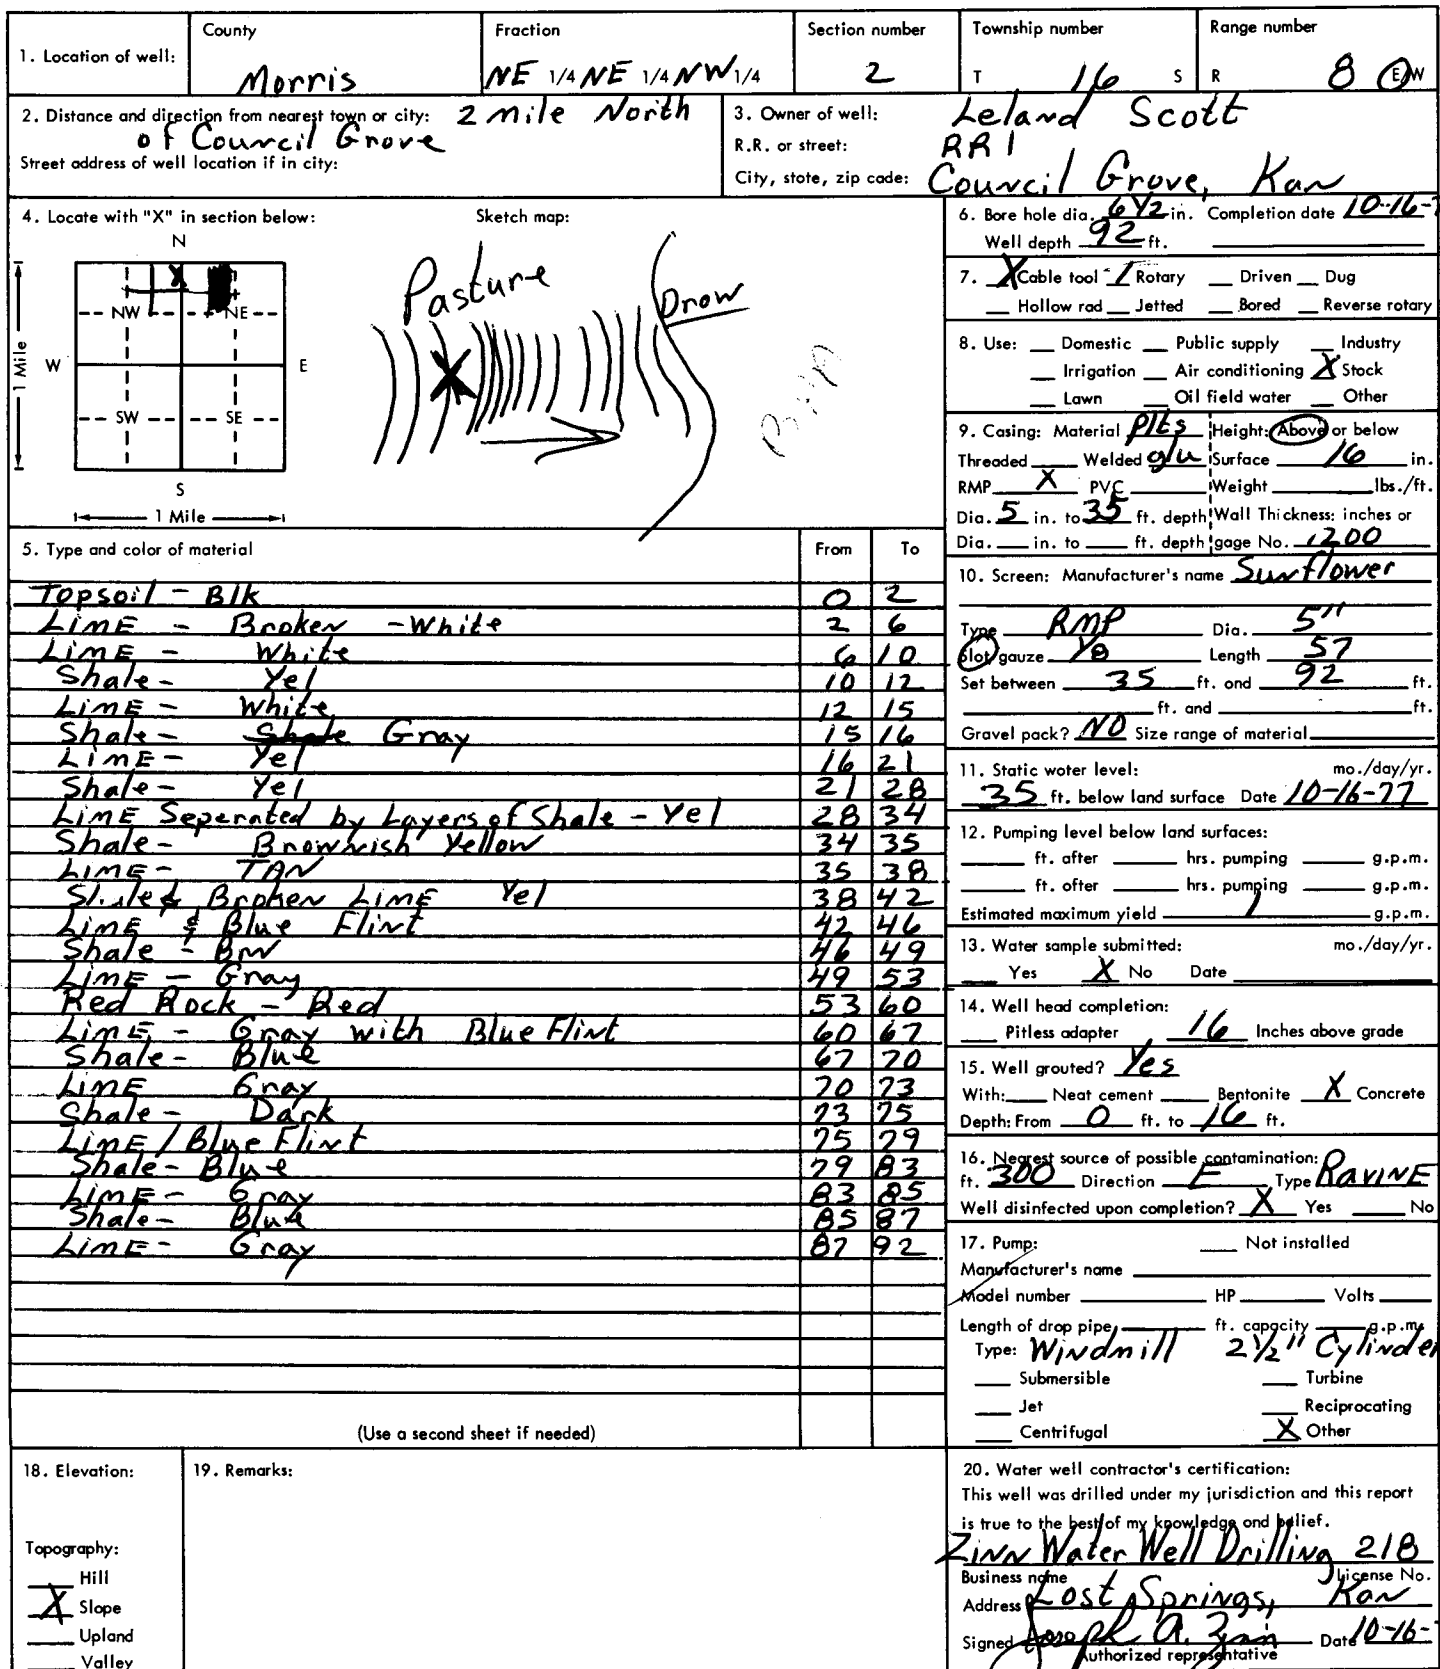 County Fraction Section number Township number Range number
1. Location of well: Morris NE 1/4 NE 1/4 NW 1/4 2 T 16 S R 8 E W
2. Distance and direction from nearest town or city: 2 mile North
of Council Grove
Street address of well location if in city:
3. Owner of well: Leland Scott
R.R. or street: RR 1
City, state, zip code: Council Grove, Kan
4. Locate with "X" in section below: Sketch map:
N
NW NE
W E
SW SE
S
1 Mile
1 Mile
Pasture
Draw
5. Type and color of material From To
Topsoil - Blk 0 2
LimE - Broken - White 2 6
LimE - White 6 10
Shale - Yel 10 12
LimE - White 12 15
Shale - Shale Gray 15 16
LimE - Yel 16 21
Shale - Yel 21 28
LimE Seperated by Layers of Shale - Yel 28 34
Shale - Brownish Yellow 34 35
LimE - TAN 35 38
Shale & Broken LimE Yel 38 42
LimE & Blue Flint 42 46
Shale - BrN 46 49
LimE - Gray 49 53
Red Rock - Red 53 60
LimE - Gray with Blue Flint 60 67
Shale - Blue 67 70
LimE Gray 70 73
Shale - Dark 73 75
LimE / Blue Flint 75 79
Shale - Blue 79 83
LimE - Gray 83 85
Shale - Blue 85 87
LimE - Gray 87 92
(Use a second sheet if needed)
6. Bore hole dia. 6 1/2 in. Completion date 10-16-7
Well depth 92 ft.
7. X Cable tool / Rotary Driven Dug
Hollow rod Jetted Bored Reverse rotary
8. Use: Domestic Public supply Industry
Irrigation Air conditioning X Stock
Lawn Oil field water Other
9. Casing: Material Plts Height: Above or below
Threaded Welded glu Surface 16 in.
RMP X PVC Weight lbs./ft.
Dia. 5 in. to 35 ft. depth Wall Thickness: inches or
Dia. in. to ft. depth gage No. .200
10. Screen: Manufacturer's name Sunflower
Type RMP Dia. 5"
Slot gauze 1/8 Length 57
Set between 35 ft. and 92 ft.
ft. and ft.
Gravel pack? NO Size range of material
11. Static water level: mo./day/yr.
35 ft. below land surface Date 10-16-77
12. Pumping level below land surfaces:
ft. after hrs. pumping g.p.m.
ft. after hrs. pumping g.p.m.
Estimated maximum yield 1 g.p.m.
13. Water sample submitted: mo./day/yr.
Yes X No Date
14. Well head completion:
Pitless adapter 16 Inches above grade
15. Well grouted? Yes
With: Neat cement Bentonite X Concrete
Depth: From 0 ft. to 16 ft.
16. Nearest source of possible contamination:
ft. 300 Direction E Type RaviNE
Well disinfected upon completion? X Yes No
17. Pump: Not installed
Manufacturer's name
Model number HP Volts
Length of drop pipe ft. capacity g.p.m.
Type: Windmill 2 1/2" Cylinder
Submersible Turbine
Jet Reciprocating
Centrifugal X Other
18. Elevation:
Topography:
Hill
X Slope
Upland
Valley
19. Remarks:
20. Water well contractor's certification:
This well was drilled under my jurisdiction and this report
is true to the best of my knowledge and belief.
Zinn Water Well Drilling 218
Business name License No.
Address Lost Springs, Kan
Signed Joseph A. Zinn Date 10-16-
Authorized representative